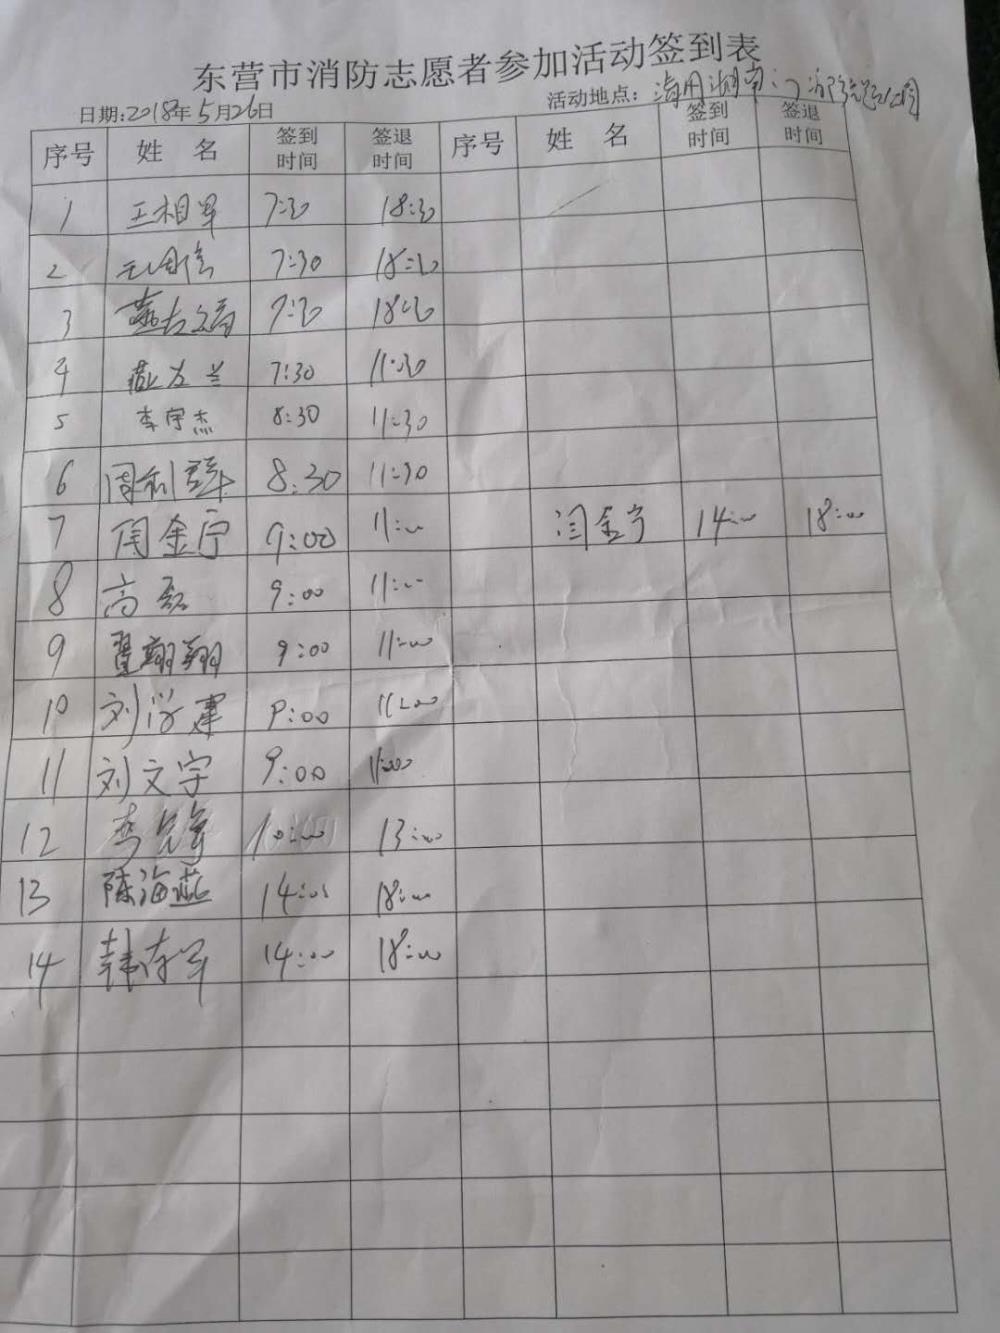 东营市消防志愿者参加活动签到表
日期:2018年5月26日 活动地点:
序号 姓名 签到时间 签退时间 序号 姓名 签到时间 签退时间
1 王相军 7:30 18:30
2 7:30 18:30
3 7:30 18:30
4 燕方兰 7:30 11:30
5 李宇杰 8:30 11:30
6 周利群 8:30 11:30
7 闫金宁 9:00 11:00 闫金宁 14:00 18:00
8 高磊 9:00 11:00
9 翔翔 9:00 11:00
10 刘学建 9:00 11:00
11 刘文宇 9:00 11:00
12 李 军 10:00 13:00
13 陈海燕 14:00 18:00
14 韩 军 14:00 18:00